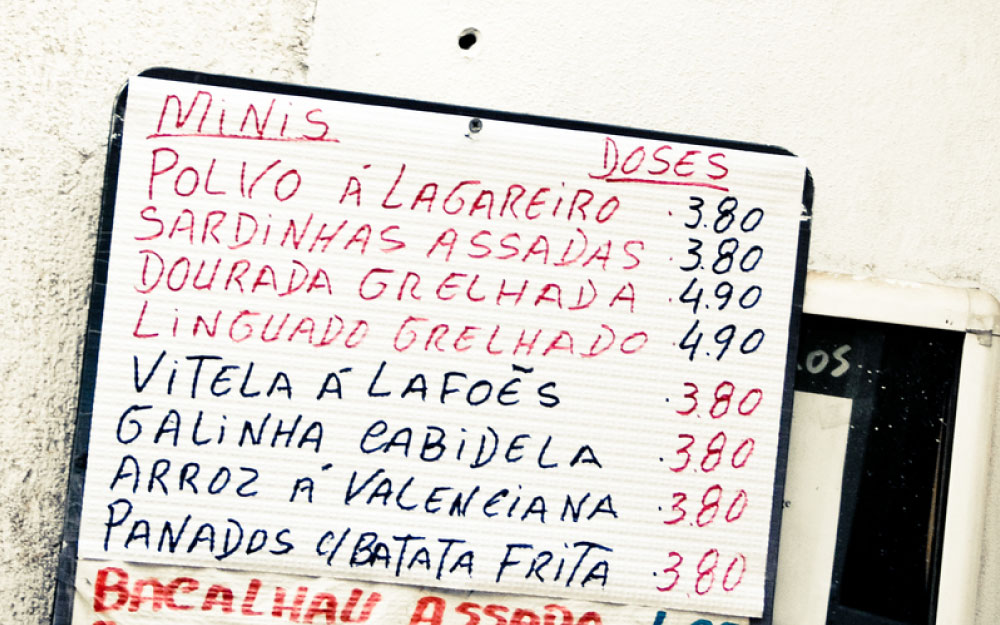 MINIS DOSES
POLVO Á LAGAREIRO .3.80
SARDINHAS ASSADAS .3.80
DOURADA GRELHADA .4.90
LINGUADO GRELHADO .4.90
VITELA Á LAFOẼS .3.80
GALINHA CABIDELA .3.80
ARROZ Á VALENCIANA .3.80
PANADOS C/BATATA FRITA .3.80
BACALHAU ASSADO